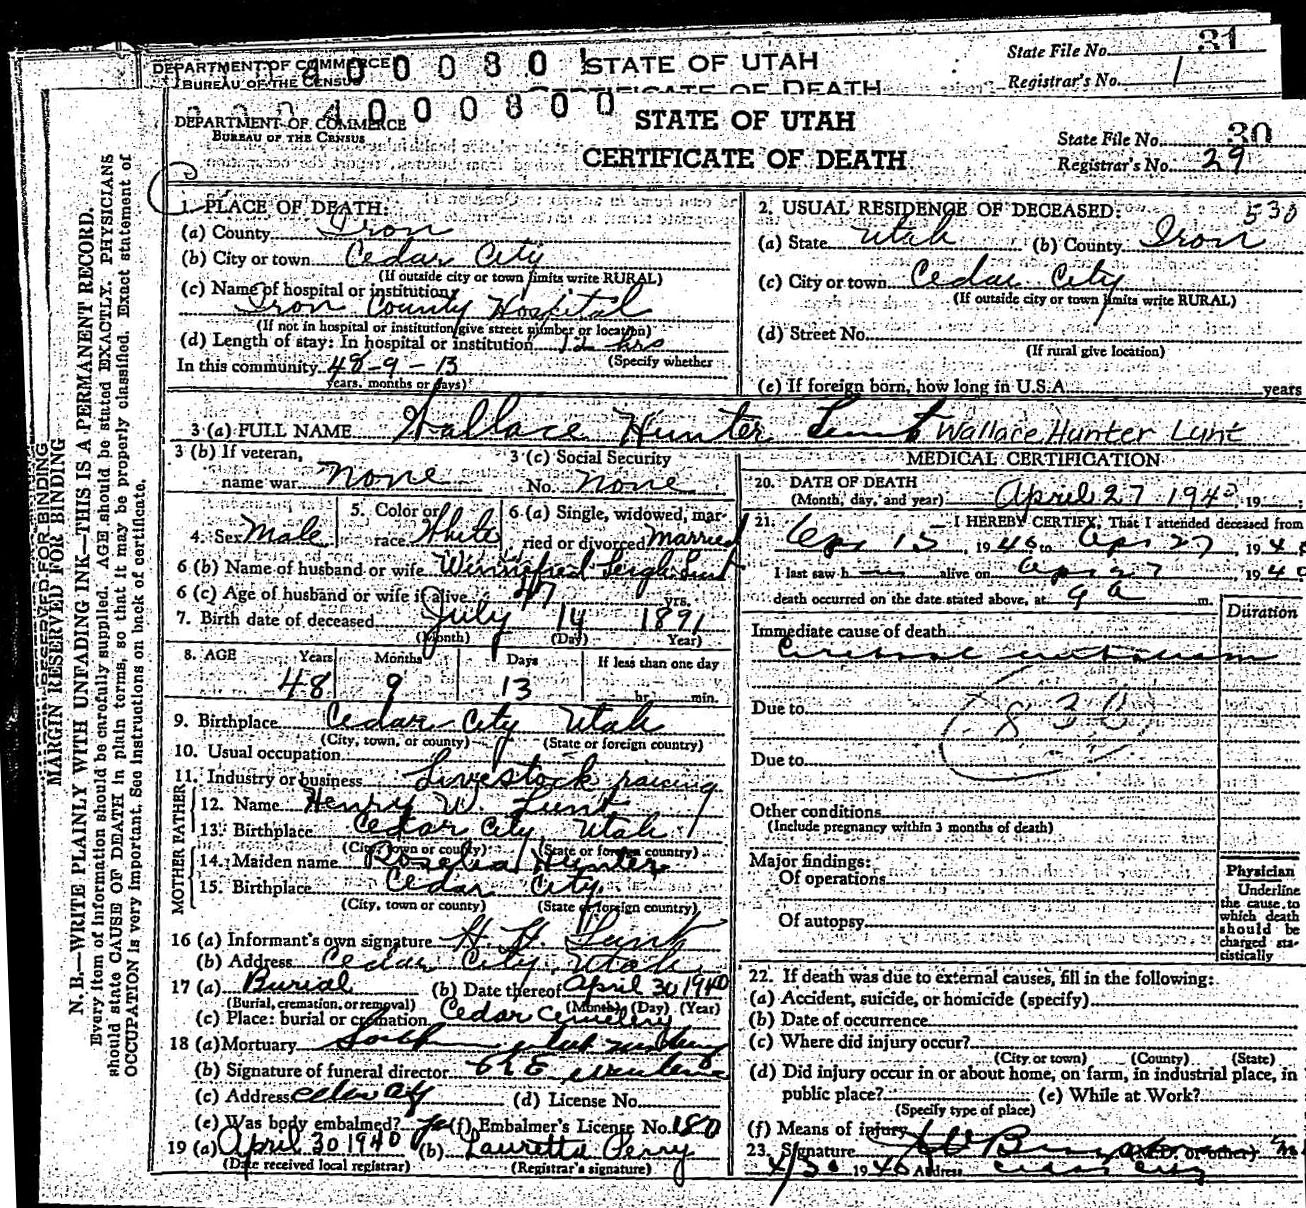 DEPARTMENT OF COMMERCE
BUREAU OF THE CENSUS
STATE OF UTAH
CERTIFICATE OF DEATH
State File No. 31
Registrar's No. 1
DEPARTMENT OF COMMERCE
BUREAU OF THE CENSUS
STATE OF UTAH
CERTIFICATE OF DEATH
State File No. 30
Registrar's No. 29
MARGIN RESERVED FOR BINDING
N. B.—WRITE PLAINLY WITH UNFADING INK—THIS IS A PERMANENT RECORD.
Every item of information should be carefully supplied. AGE should be stated EXACTLY. PHYSICIANS
should state CAUSE OF DEATH in plain terms, so that it may be properly classified. Exact statement of
OCCUPATION is very important. See instructions on back of certificate.
1. PLACE OF DEATH:
(a) County Iron
(b) City or town Cedar City
(If outside city or town limits write RURAL)
(c) Name of hospital or institution
Iron County Hospital
(If not in hospital or institution give street number or location)
(d) Length of stay: In hospital or institution 12 hrs
(Specify whether
In this community 48-9-13
years, months or days)
2. USUAL RESIDENCE OF DECEASED: 530
(a) State Utah (b) County Iron
(c) City or town Cedar City
(If outside city or town limits write RURAL)
(d) Street No.
(If rural give location)
(e) If foreign born, how long in U.S.A. years
3 (a) FULL NAME Wallace Hunter Lunt Wallace Hunter Lunt
3 (b) If veteran, name war none
3 (c) Social Security No. none
4. Sex Male 5. Color or race White 6 (a) Single, widowed, married or divorced Married
6 (b) Name of husband or wife Winnifred Leigh Lunt
6 (c) Age of husband or wife if alive 47 yrs.
7. Birth date of deceased July 14 1891
(Month) (Day) (Year)
8. AGE Years Months Days If less than one day
48 9 13 hr. min.
9. Birthplace Cedar City Utah
(City, town, or county) (State or foreign country)
10. Usual occupation
11. Industry or business Livestock raising
FATHER
12. Name Henry W. Lunt
13. Birthplace Cedar City Utah
(City, town or county) (State or foreign country)
MOTHER
14. Maiden name Roselia Hunter
15. Birthplace Cedar City
(City, town or county) (State or foreign country)
16 (a) Informant's own signature H. H. Lunt
(b) Address Cedar City, Utah
17 (a) Burial (b) Date thereof April 30 1940
(Burial, cremation, or removal) (Month) (Day) (Year)
(c) Place: burial or cremation Cedar Cemetery
18 (a) Mortuary
(b) Signature of funeral director
(c) Address Cedar City (d) License No.
(e) Was body embalmed? (f) Embalmer's License No. 180
19 (a) April 30 1940 (b) Lauretta Perry
(Date received local registrar) (Registrar's signature)
MEDICAL CERTIFICATION
20. DATE OF DEATH
(Month, day, and year) April 27 1940, 19
21. I HEREBY CERTIFY, That I attended deceased from
Apr 15, 1940 to Apr 27, 194
I last saw h alive on Apr 27 1940
death occurred on the date stated above, at 9 a m.
Duration
Immediate cause of death
Due to 830
Due to
Other conditions
(Include pregnancy within 3 months of death)
Major findings:
Of operations
Of autopsy
Physician
Underline
the cause to
which death
should be
charged sta-
tistically
22. If death was due to external causes, fill in the following:
(a) Accident, suicide, or homicide (specify)
(b) Date of occurrence
(c) Where did injury occur?
(City or town) (County) (State)
(d) Did injury occur in or about home, on farm, in industrial place, in
public place? (e) While at Work?
(Specify type of place)
(f) Means of injury
23. Signature (M.D. or other)
4/30 1940 Address Cedar City